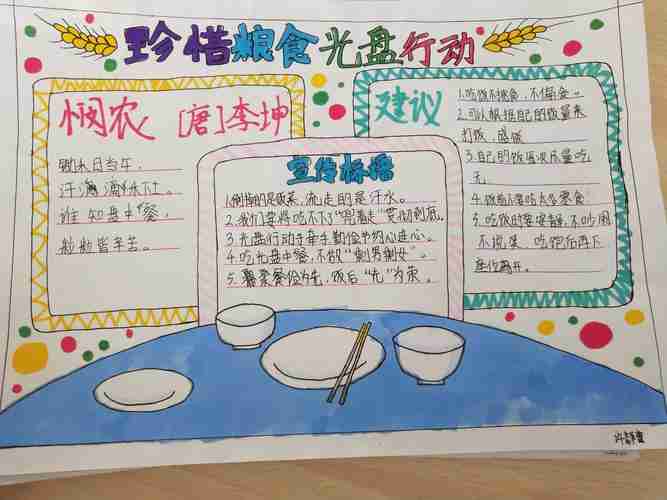 珍惜粮食光盘行动
悯农 [唐]李坤
锄禾日当午，
汗滴禾下土。
谁知盘中餐，
粒粒皆辛苦。
宣传标语
1.剩下的是饭菜，流走的是汗水。
2.我们要将吃不了"兜着走"贯彻到底。
3.光盘行动手牵手勤俭节约心连心。
4.吃光盘中餐，不做"剩男剩女"。
5.餐俭为先，饭后"光"为荣。
建议
1.吃饭不挑食，不偏食。
2.可以根据自己的饭量来
打饭，盛饭
3.自己的饭每次尽量吃
完
4.饭前不要吃太多零食
5.吃饭时要安静，不吵闹
不说笑，吃饱后再下
座位离开。
许